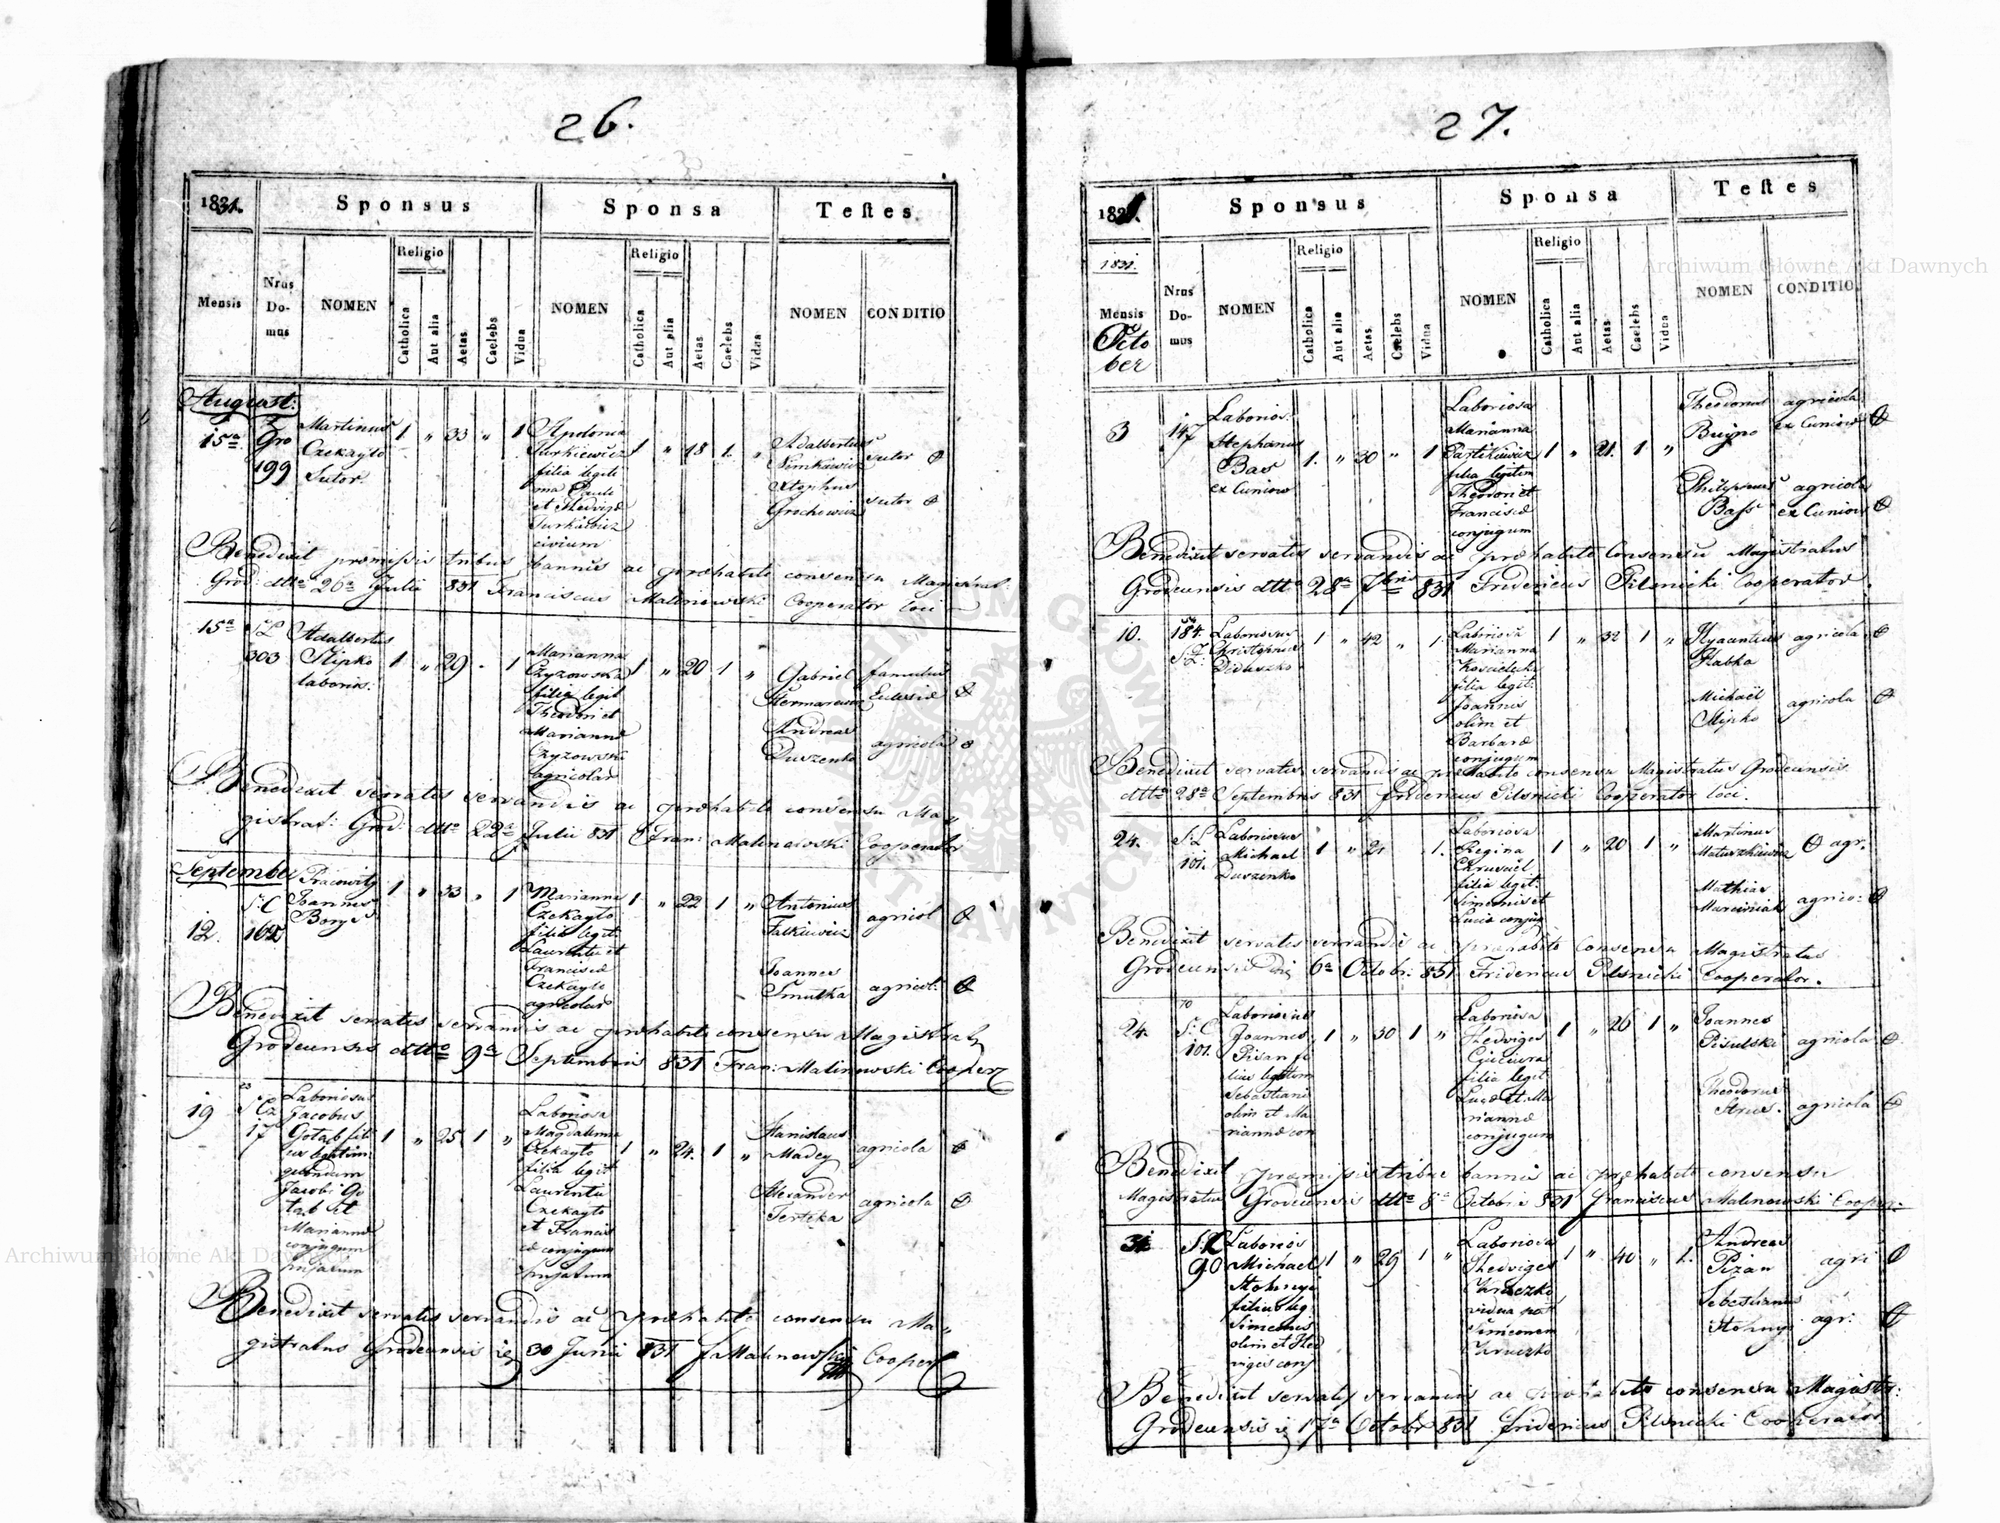 26.
1831.
Sponsus
Sponsa
Testes
Mensis
Nrus Domus
NOMEN
Religio
Catholica
Aut alia
Aetas
Caelebs
Vidua
NOMEN
Religio
Catholica
Aut alia
Aetas
Caelebs
Vidua
NOMEN
CONDITIO
August:
15ª
Gro
199
Martinus
Czekayło
Sutor
1 " 33 " 1
Apolonia
Turkiewicz
filia legiti
ma Pauli
et Hedvigæ
Turkiewicz
civium
1 " 18 1 "
Adalbertus
Simkiewicz
Stephus
Grochowicz
sutor
sutor
Benedixit præmissis tribus bannis ac præhabito consensu Magistrat:
Grod: dtto 26ª Julii 831 Franciscus Malinowski Cooperator loci
15ª
303
Adalbertus
Slipko
laborios.
1 " 29 " 1
Marianna
Czyzowska
filia legit
Theodori et
Mariannæ
Czyzowski
agricolar
1 " 20 1 "
Gabriel
Hermanowicz
Andreas
Duszenko
famulus
Ecclesiæ
agricola
Benedixit servatis servandis ac præhabito consensu Ma„
gistrat: Grod: dtto 22ª Julii 831 Fran: Malinowski Cooperator
September
12.
162
Pracowity
Joannes
Borys
1 " 33 " 1
Marianna
Czekayło
filia legit:
Laurentii et
Franciscæ
Czekayło
agricolar
1 " 22 1 "
Antonius
Falkiewicz
Joannes
Smutka
agricol
agricol:
Benedixit servatis servandis ac præhabito consensu Magistrat
Grodecensis dtto 9ª Septembris 831 Fran: Malinowski Cooper
19
17
Laboriosus
Jacobus
Gotab fili
us legitim
quondam
Jacobi Go
tab et
Mariannæ
conjugum
1 " 25 1 "
Laboriosa
Magdalena
Czekayło
filia legit
Laurentii
Czekayło
et Francis
cæ conjugum
1 " 24. 1 "
Stanislaus
Madey
Alexander
Terteka
agricola
agricola
Benedixit servatis servandis ac præhabito consensu Ma„
gistratus Grodecensis 30 Junii 831 Malinowski Cooper
27.
1831.
Sponsus
Sponsa
Testes
1831.
Mensis
Octo
ber
Nrus Domus
NOMEN
Religio
Catholica
Aut alia
Aetas
Caelebs
Vidua
NOMEN
Religio
Catholica
Aut alia
Aetas
Caelebs
Vidua
NOMEN
CONDITIO
3
147
Laborios.
Stephanus
Bas
ex Cuniow
1. " 30 " 1
Laboriosa
Marianna
filia legitim
Theodori et
Franciscæ
conjugum
1 " 21. 1 "
Theodorus
Philippus
Bass
agricola
ex Cuniow
agricola
ex Cuniow
Benedixit servatis servandis ac præhabito Consensu Magistratus
Grodecensis dtto 28ª 7bris 831 Fridericus Pilsnicki Cooperator.
10.
184.
Laboriosus
Christophorus
Diduszko
1 " 42 " 1
Laboriosa
Marianna
filia legit:
Joannis
olim et
Barbaræ
conjugum
1 " 32 1 "
Hyacintus
Michaël
Slipko
agricola
agricola
Benedixit servatis servandis ac præhabito consensu Magistratus Grodecensis
dtto 28ª Septembris 831 Fridericus Pilsnicki Cooperator loci.
24.
101.
Laboriosus
Michael
Duszenko
1 " 24 " 1.
Laboriosa
Regina
filia legit:
Simeonis et
Luciæ conjug
1 " 20 1 "
Martinus
Mathias
Marciniak
agr.
agrico:
Benedixit servatis servandis ac præhabito Consensu Magistratus
Grodecensis 6ª Octobr: 831 Fridericus Pilsnicki Cooperator.
24.
70
101.
Laboriosus
Joannes
Pisan fi
lius legitim
Sebastiani
olim et Ma
riannæ con
1 " 30 1 "
Laboriosa
Hedviges
filia legit
Lucæ et Ma
riannæ
conjugum
1 " 26 1 "
Joannes
Pisulski
Theodorus
agricola
agricola
Benedixit præmissis tribus bannis ac præhabito consensu
Magistratus Grodecensis dtto 8ª Octobris 831 Franciscus Malinowski Cooper:
31
90
Laborios
Michael
Stohnyi
filius leg
Simeonis
olim et Hed
vigis conj
1 " 29 1 "
Laboriosa
Hedviges
vidua post
Simeonem
1 " 40 " 1.
Andreas
Pizan
Sebestianus
Stohnyi
agri
agr:
Benedixit servatis servandis ac præhabito consensu Magistr:
Grodecensis 17ª Octobr 831 Fridericus Pilsnicki Cooperator
Archiwum Główne Akt Dawnych
Archiwum Główne Akt Dawnych
ARCHIWUM GŁÓWNE AKT DAWNYCH